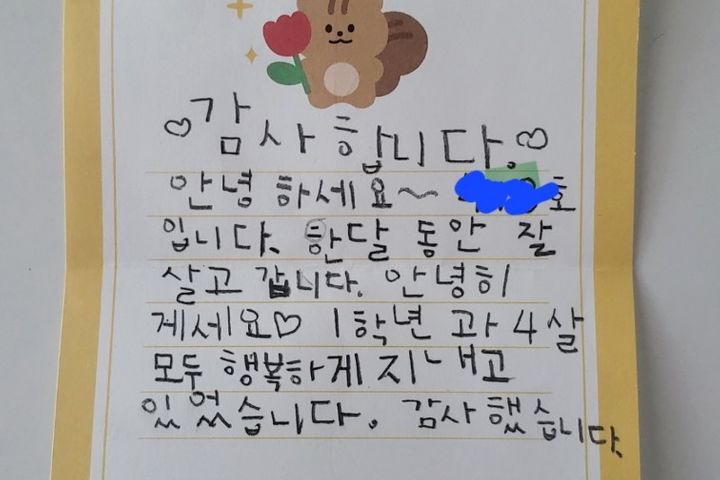 ♡감사합니다.♡
안녕하세요~ 호
입니다. 한달 동안 잘
살고 갑니다. 안녕히
계세요♡ 1학년 과 4살
모두 행복하게 지내고
있었습니다. 감사했습니다.